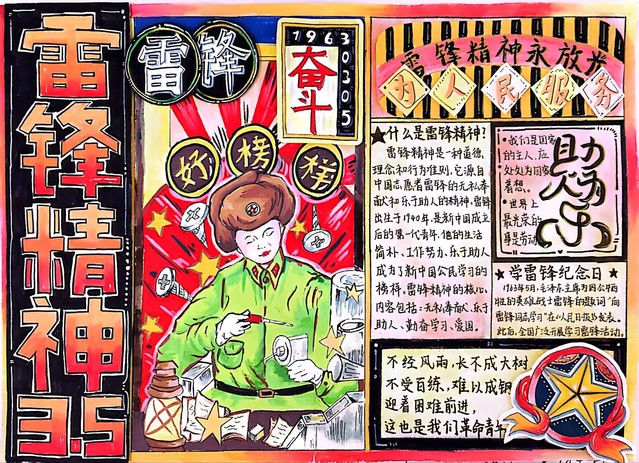 雷锋精神3.5
雷锋
19630305
奋斗
好榜样
雷锋精神永放光
为人民服务
什么是雷锋精神?
雷锋精神是一种道德,
理念和行为准则,它源自
中国志愿者雷锋的无私奉
献和乐于助人的精神,雷锋
出生于1940年,是新中国成立
后的第一代青年,他的生活
简朴、工作努力、乐于助人
成为了新中国公民学习的
榜样,雷锋精神的核心,
内容包括:无私奉献、乐于
助人、勤奋学习、爱国。
•我们是国家
的主人,应
处处为国家
着想。
•世界上
最光荣的
事是劳动
助人为乐
学雷锋纪念日
1963年3月,毛泽东主席为因公牺
牲的英雄战士雷锋的题词"向
雷锋同志学习"在《人民日报》发表。
此后,全国广泛开展学习雷锋活动。
不经风雨,长不成大树
不受百练,难以成钢
迎着困难前进,
这也是我们革命青年